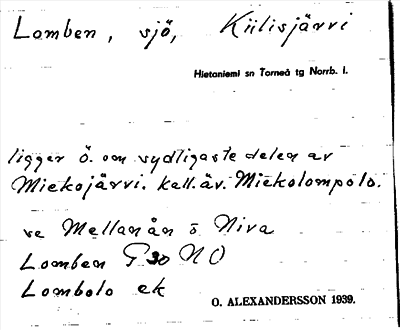 Lomben, sjö, Kiilisjärvi
Hietaniemi sn Torneå tg Norrb. l.
ligger Ö. om sydligaste delen av
Miekojärvi. kall. äv. Miekolompolo.
se Mellanån o Niva
Lomben 30 NO
Lombolo ek
O. ALEXANDERSSON 1939.